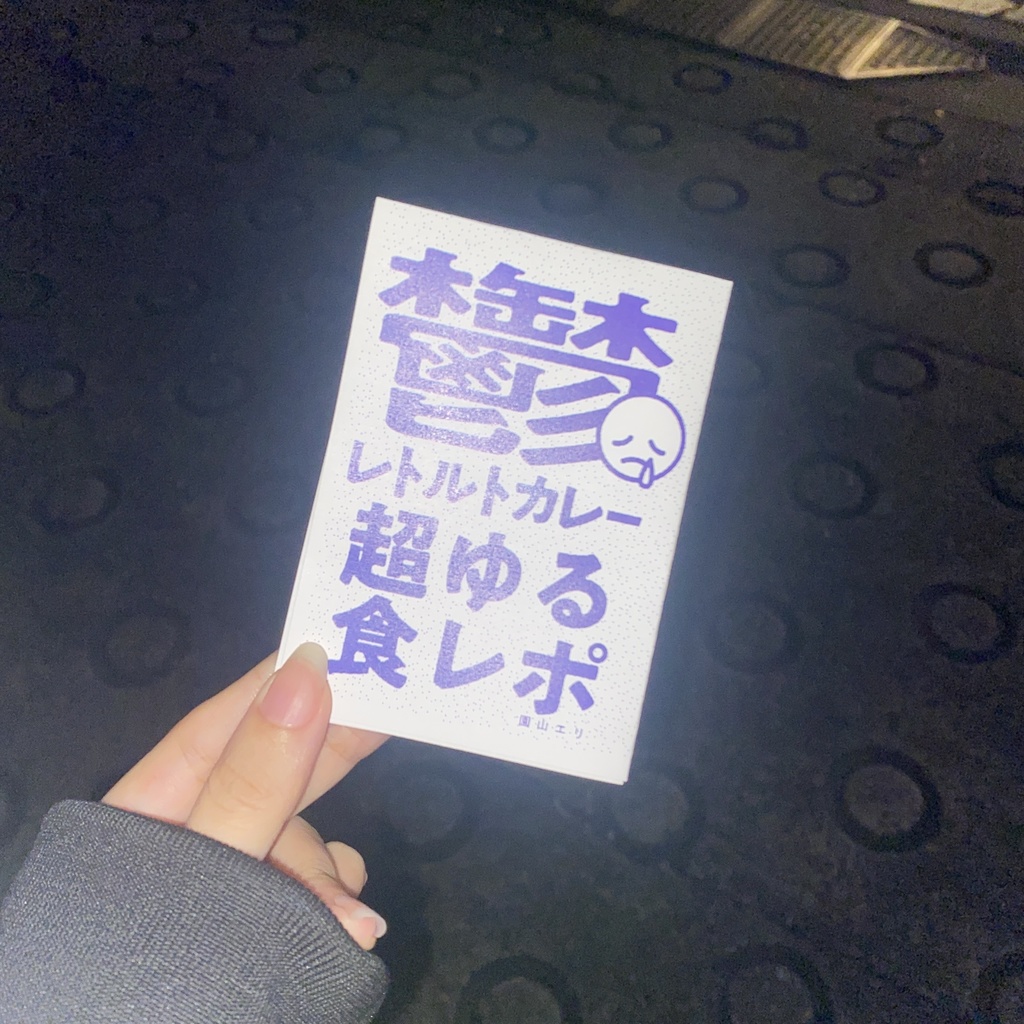 鬱
レトルトカレー
超ゆる
食レポ
園山エリ